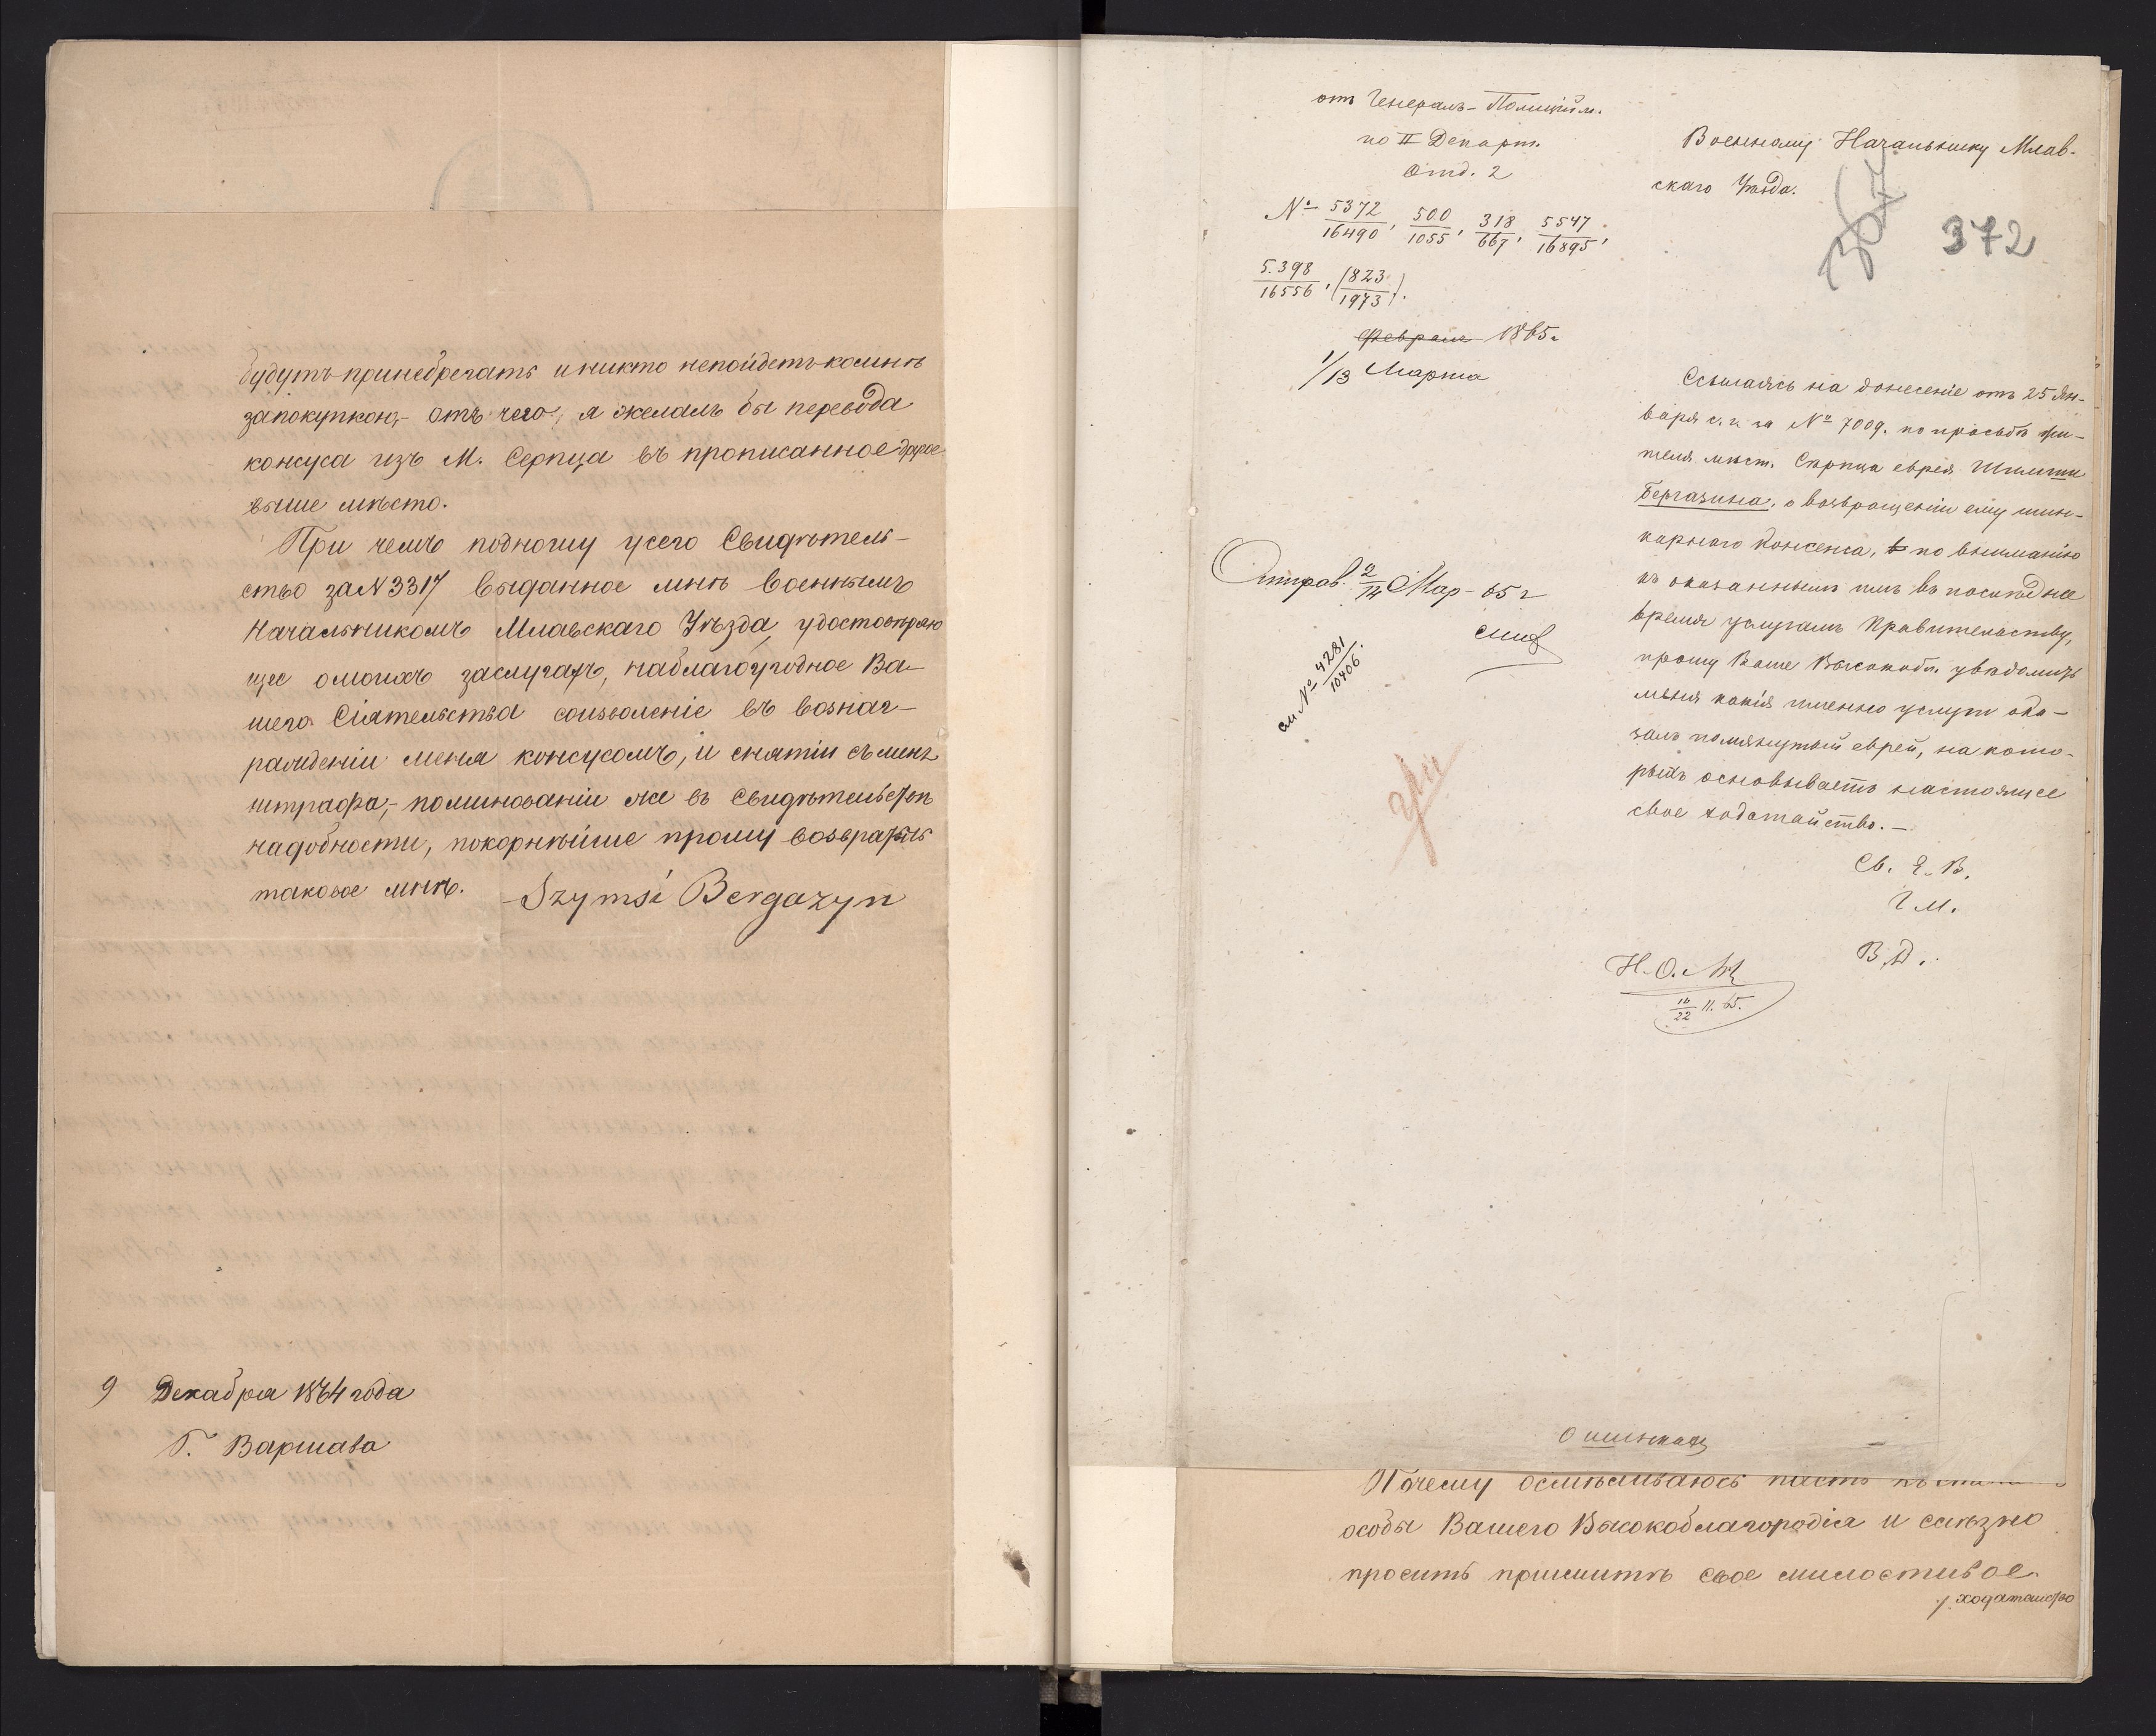 будутъ принебрегать и никто непойдетъ комнѣ
запокупкою,- отъ чего, я желалъ бы перевода
консуса изъ М. Серпца въ прописанное другое
выше мѣсто.
При чемъ подношу усего Свидѣтель-
ство за N 3317 выданное мнѣ Военнымъ
Начальникомъ Млавскаго Уѣзда, удостовѣряю
щее омоихъ заслугахъ, наблагоугодное Ва-
шего Сіятельства соизволеніе въ вознаг-
ражденіи меня консусомъ, и снятіи съ меня
штрафа,- поминованіи же въ Свидѣтельствѣ
надобности, покорнѣйше прошу возвратить
таковое мнѣ. Szymsi Bergazyn
9 Декабря 1864 года
Г. Варшава
отъ Генералъ-Полиційм.
по II Департ.
Отд. 2
№ 5372/16490, 500/1055, 318/667, 5547/16895,
5.398/16556, (823/1973).
Февраля 1865 г.
1/13 Марта
Отправ. 2/14 Мар- 65 г
см № 4281/10406.
Военному Начальнику Млав-
скаго Уѣзда.
372
Ссылаясь на донесеніе отъ 25 Ян-
варя с. г. за № 7009. по просьбѣ жи-
теля мѣст. Серпца еврея Шимши
Бергазина, о возвращеніи ему шин-
карнаго консенса, по вниманію
къ оказаннымъ имъ въ послѣднее
время услугамъ Правительству,
прошу Ваше Высокобл. увѣдомить
меня какія именно услуги ока-
залъ помянутый еврей, на кото-
рыхъ основываетъ настоящее
свое ходатайство.-
Св. Е. В.
Г М.
В. Д.
Н. О.
16/22 II. 65.
Почему осмѣливаюсь пасть
особы Вашего Высокоблагородія и слѣзно
просить принять свое милостивое
./. ходатайство